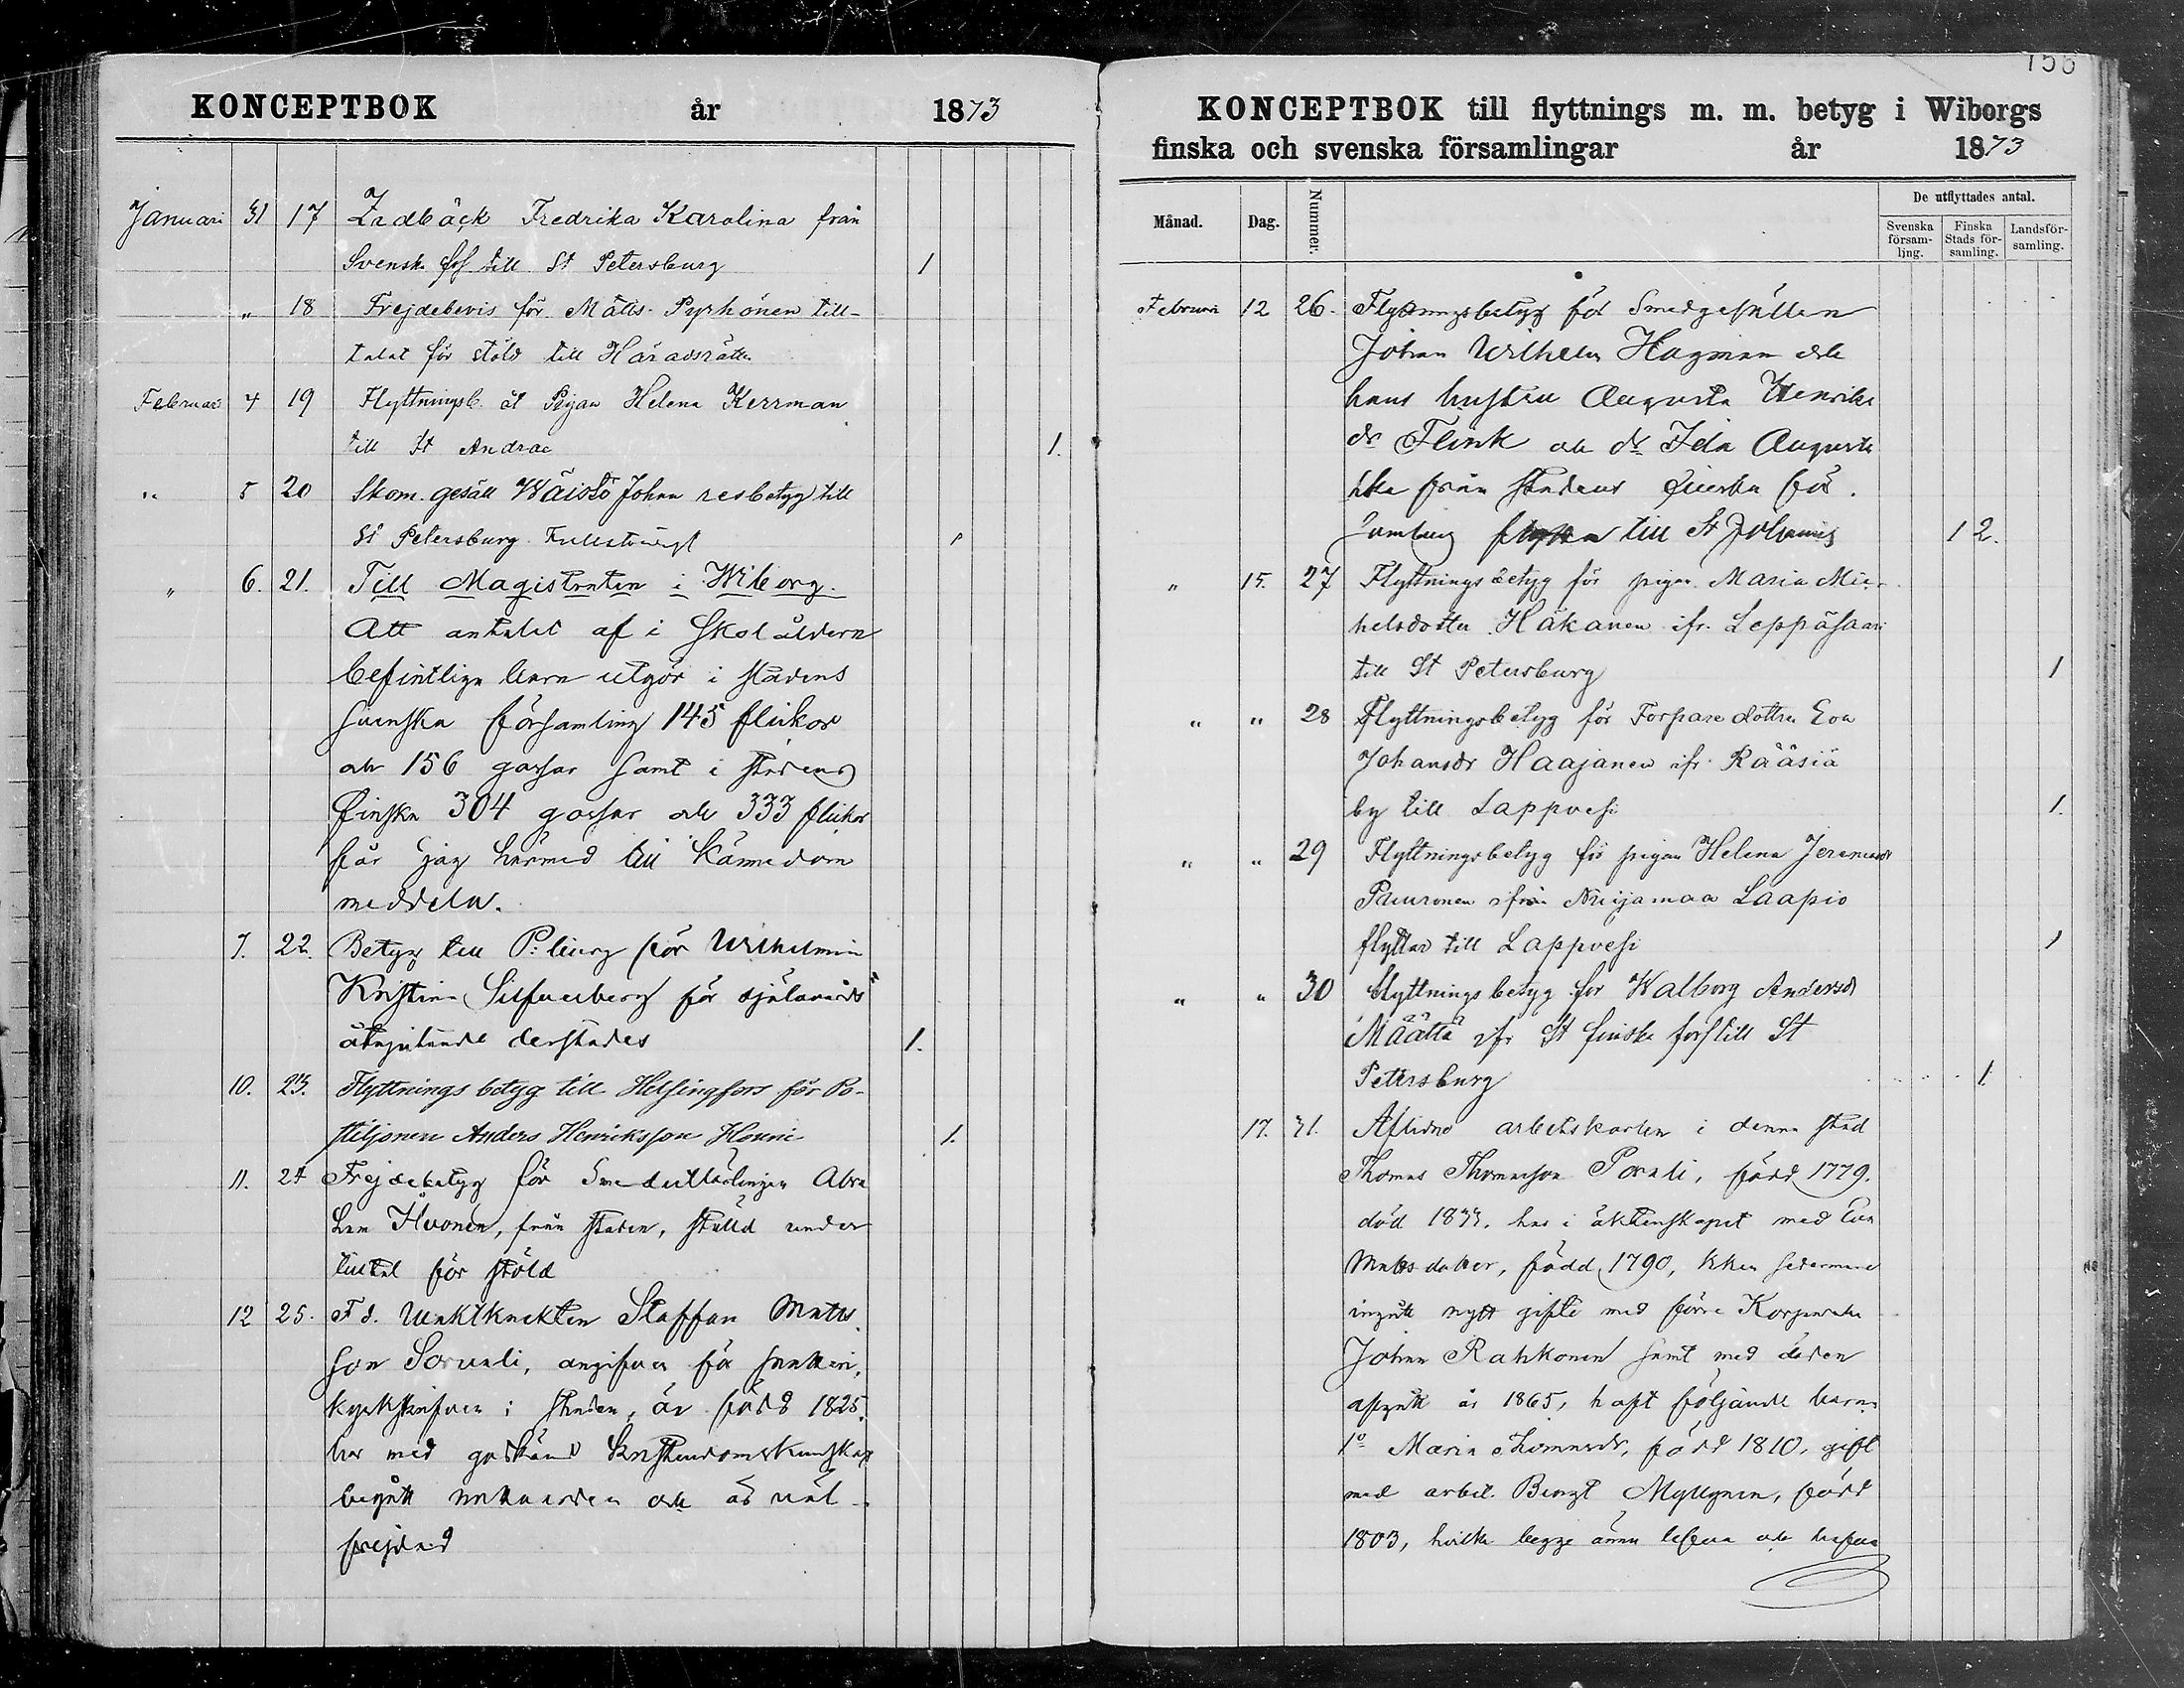 KONCEPTBOK år 1873
Januari 31 17 Fredrika Karolina från
Svensk förs till St Petersburg 1
" 18 Frejdebevis för Matts Pyrhönen till-
talat för stöld till Häradsrätten
Februari 4 19 Flyttningsb. åt Pigan Helena Kerrman
till St Andrae 1.
" 5 20 Skom. gesäll Wäistö Johan resbetyg till
St Petersburg 1
" 6. 21. Till Magistraten i Wiborg.
Att antalet af i Skolåldern
befintliga barn utgör i stadens
svenska församling 145 flickor
och 156 gossar samt i stadens
finska 304 gossar och 333 flickor
får jag härmed till kännedom
meddela.
7. 22. Betyg till P:burg för Wilhelmina
Kristina Silfverberg för själavårds
åtnjutande derstädes 1.
10. 23. Flyttnings betyg till Helsingfors för Po-
stiljonen Anders Henriksson Houni 1.
11. 24 Frejdebetyg för Abra
ham Ihonen, från staden, ställd under
tilltal för stöld
12 25. F d. Vaktknekten Staffan Matts
son Sorvali, angifven för
i staden, är född 1825,
har med godkänd kristendomskunskap
begått nattvarden och är väl-
frejdad
156
KONCEPTBOK till flyttnings m. m. betyg i Wiborgs
finska och svenska församlingar år 1873
Månad. Dag. Nummer. De utflyttades antal.
Svenska församling. Finska Stads församling. Landsförsamling.
Februari 12 26. Flyttningsbetyg för Smedgesällen
Johan Wilhelm Hagman och
hans hustru Augusta Henriks
dr Flink och dr Ida Augusta
från stadens finska för.
samling till St Johannis 1 2.
" 15. 27 Flyttnings betyg för pigan Maria Mic-
helsdotter Häkanen ifr. Leppäsaari
till St Petersburg 1
" " 28 Flyttningsbetyg för Torpare dottren Eva
Johansdr Haajanen ifr. Rääsiä
by till Lappvesi 1.
" " 29 Flyttningsbetyg för pigan Helena Jeremiasdr
Puuronen ifrån Nuijamaa Laapio
flyttar till Lappvesi 1
" " 30 Flyttnings betyg för Walborg Andersdr
Määttä ifr St finska förs till St
Petersburg 1.
17. 31. Aflidne arbetskarlen i denna stad
Thomas Thomasson Porali, född 1779.
död 1833. har i äktenskapet med Eva
Matsdotter, född 1790, sedermera
ingått nytt gifte med förre
Johan Rahkonen samt med döden
afgått år 1865, haft följande barn:
1º Maria Thomasdr, född 1810, gift
med arbet. Bengt Myllynen, född
1803, hvilka begge ännu lefva och hafva